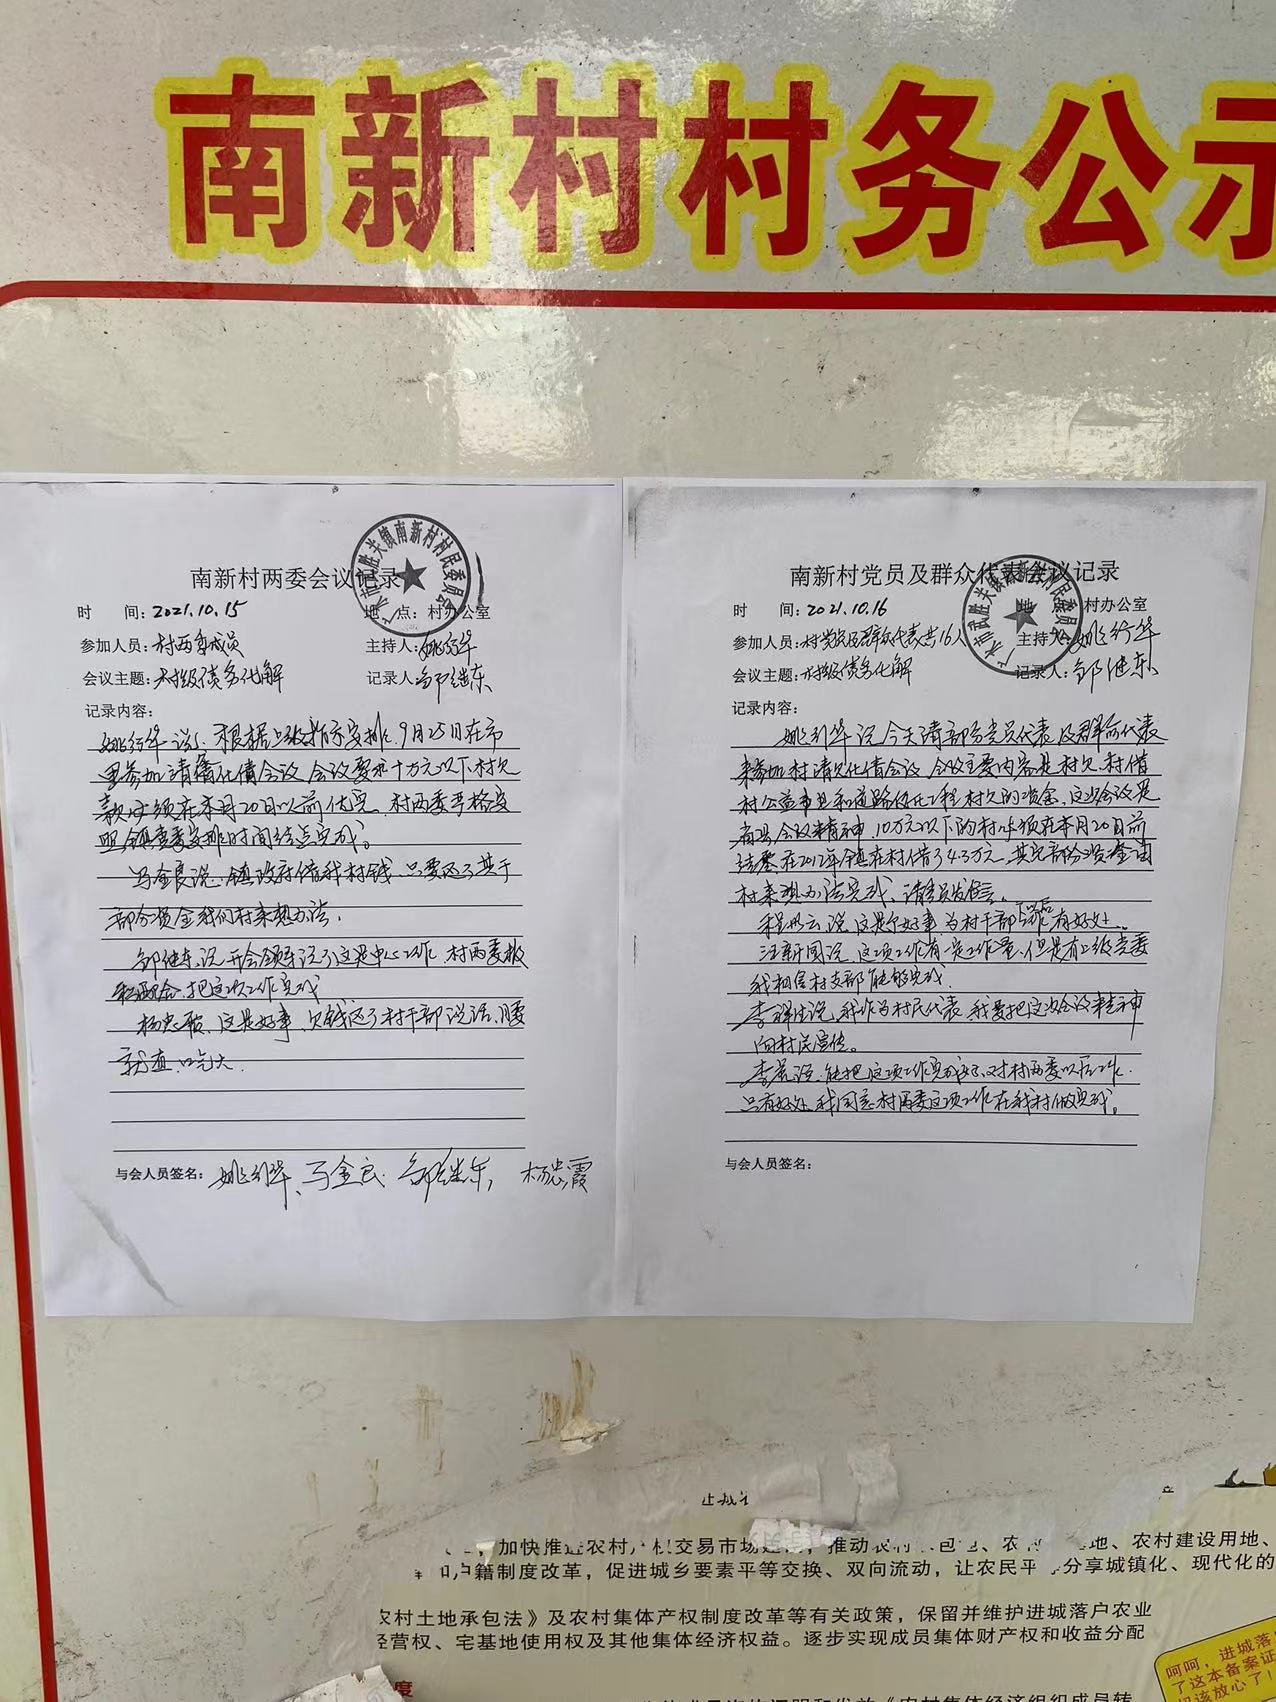 南新村村务公示
南新村两委会议记录
时 间：2021.10.15 地 点：村办公室
参加人员：村两委成员 主持人：姚行华
会议主题：村级债务化解 记录人：邹继东
记录内容：
姚行华说：根据上级指示安排，9月25日在市
里参加清债化债会议，会议要求十万元以下村欠
款必须在本月20日以前化完，村两委严格安
照镇党委安排时间结点完成。
马金良说：镇政府借我村钱，只要还了其于
部分资金我们村来想办法，
邹继东说，开会领导说了这是中心工作，村两委积
极配合，把这项工作完成
杨忠霞，这是好事，欠钱还了村干部说话，
与会人员签名：姚行华、马金良、邹继东，杨忠霞
广水市武胜关镇南新村村民委员会
南新村党员及群众代表会议记录
时 间：2021.10.16 地 村办公室
参加人员：村党员及群众代表共16人 主持人：姚行华
会议主题：村级债务化解 记录人：邹继东
记录内容：
姚行华说今天请部分党员代表及群众代表
来参加村清欠化债会议，会议主要内容是村欠、村借
村公益事业和道路硬化工程村欠的资金，这次会议是
市县会议精神，10万元以下的村 须在本月20日前
结 在2012年镇在村借了4.3万元，其它部分资金由
村来想办法完成，请 发言。
程 云说，这是个好事，为村干部 后有好处。
汪新国说，这项工作有一定工作量，但是有上级党委
我相信村支部能够完成，
李祥生说，我作为村民代表，我要把这次会议精神
向村民宣传。
李 说，能把这项工作完成好，对村两委以后工作
只有好处，我同意村两委这项工作在我村做完成。
与会人员签名：
广水市武胜关镇南新村村民委员会
，加快推进农村产权交易市场建 ，推动农村 包 、农 地、农村建设用地、
户籍制度改革，促进城乡要素平等交换、双向流动，让农民平 分享城镇化、现代化的
农村土地承包法》及农村集体产权制度改革等有关政策，保留并维护进城落户农业
经营权、宅基地使用权及其他集体经济权益。逐步实现成员集体财产权和收益分配
呵呵，进城落
了这本备案证
该放心了！
度